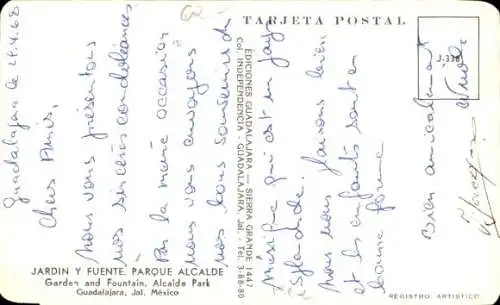 TARJETA POSTAL
Guadalajara le 21.4.68
Chers Amis,
Nous vous présentons
nos sincères condoléances
Par la même occasion
nous vous envoyons
nos bons souvenirs du
Mexique qui est un pays
splendide.
Nous nous faisons bien
et les enfants sont en
bonne forme
Bien amicalement
EDICIONES GUADALAJARA — SIERRA GRANDE 1447
Col. INDEPENDENCIA - GUADALAJARA, Jal. - Tel. 3-88-89
JARDIN Y FUENTE, PARQUE ALCALDE
Garden and Fountain, Alcalde Park
Guadalajara, Jal. México
REGISTRO ARTISTICO